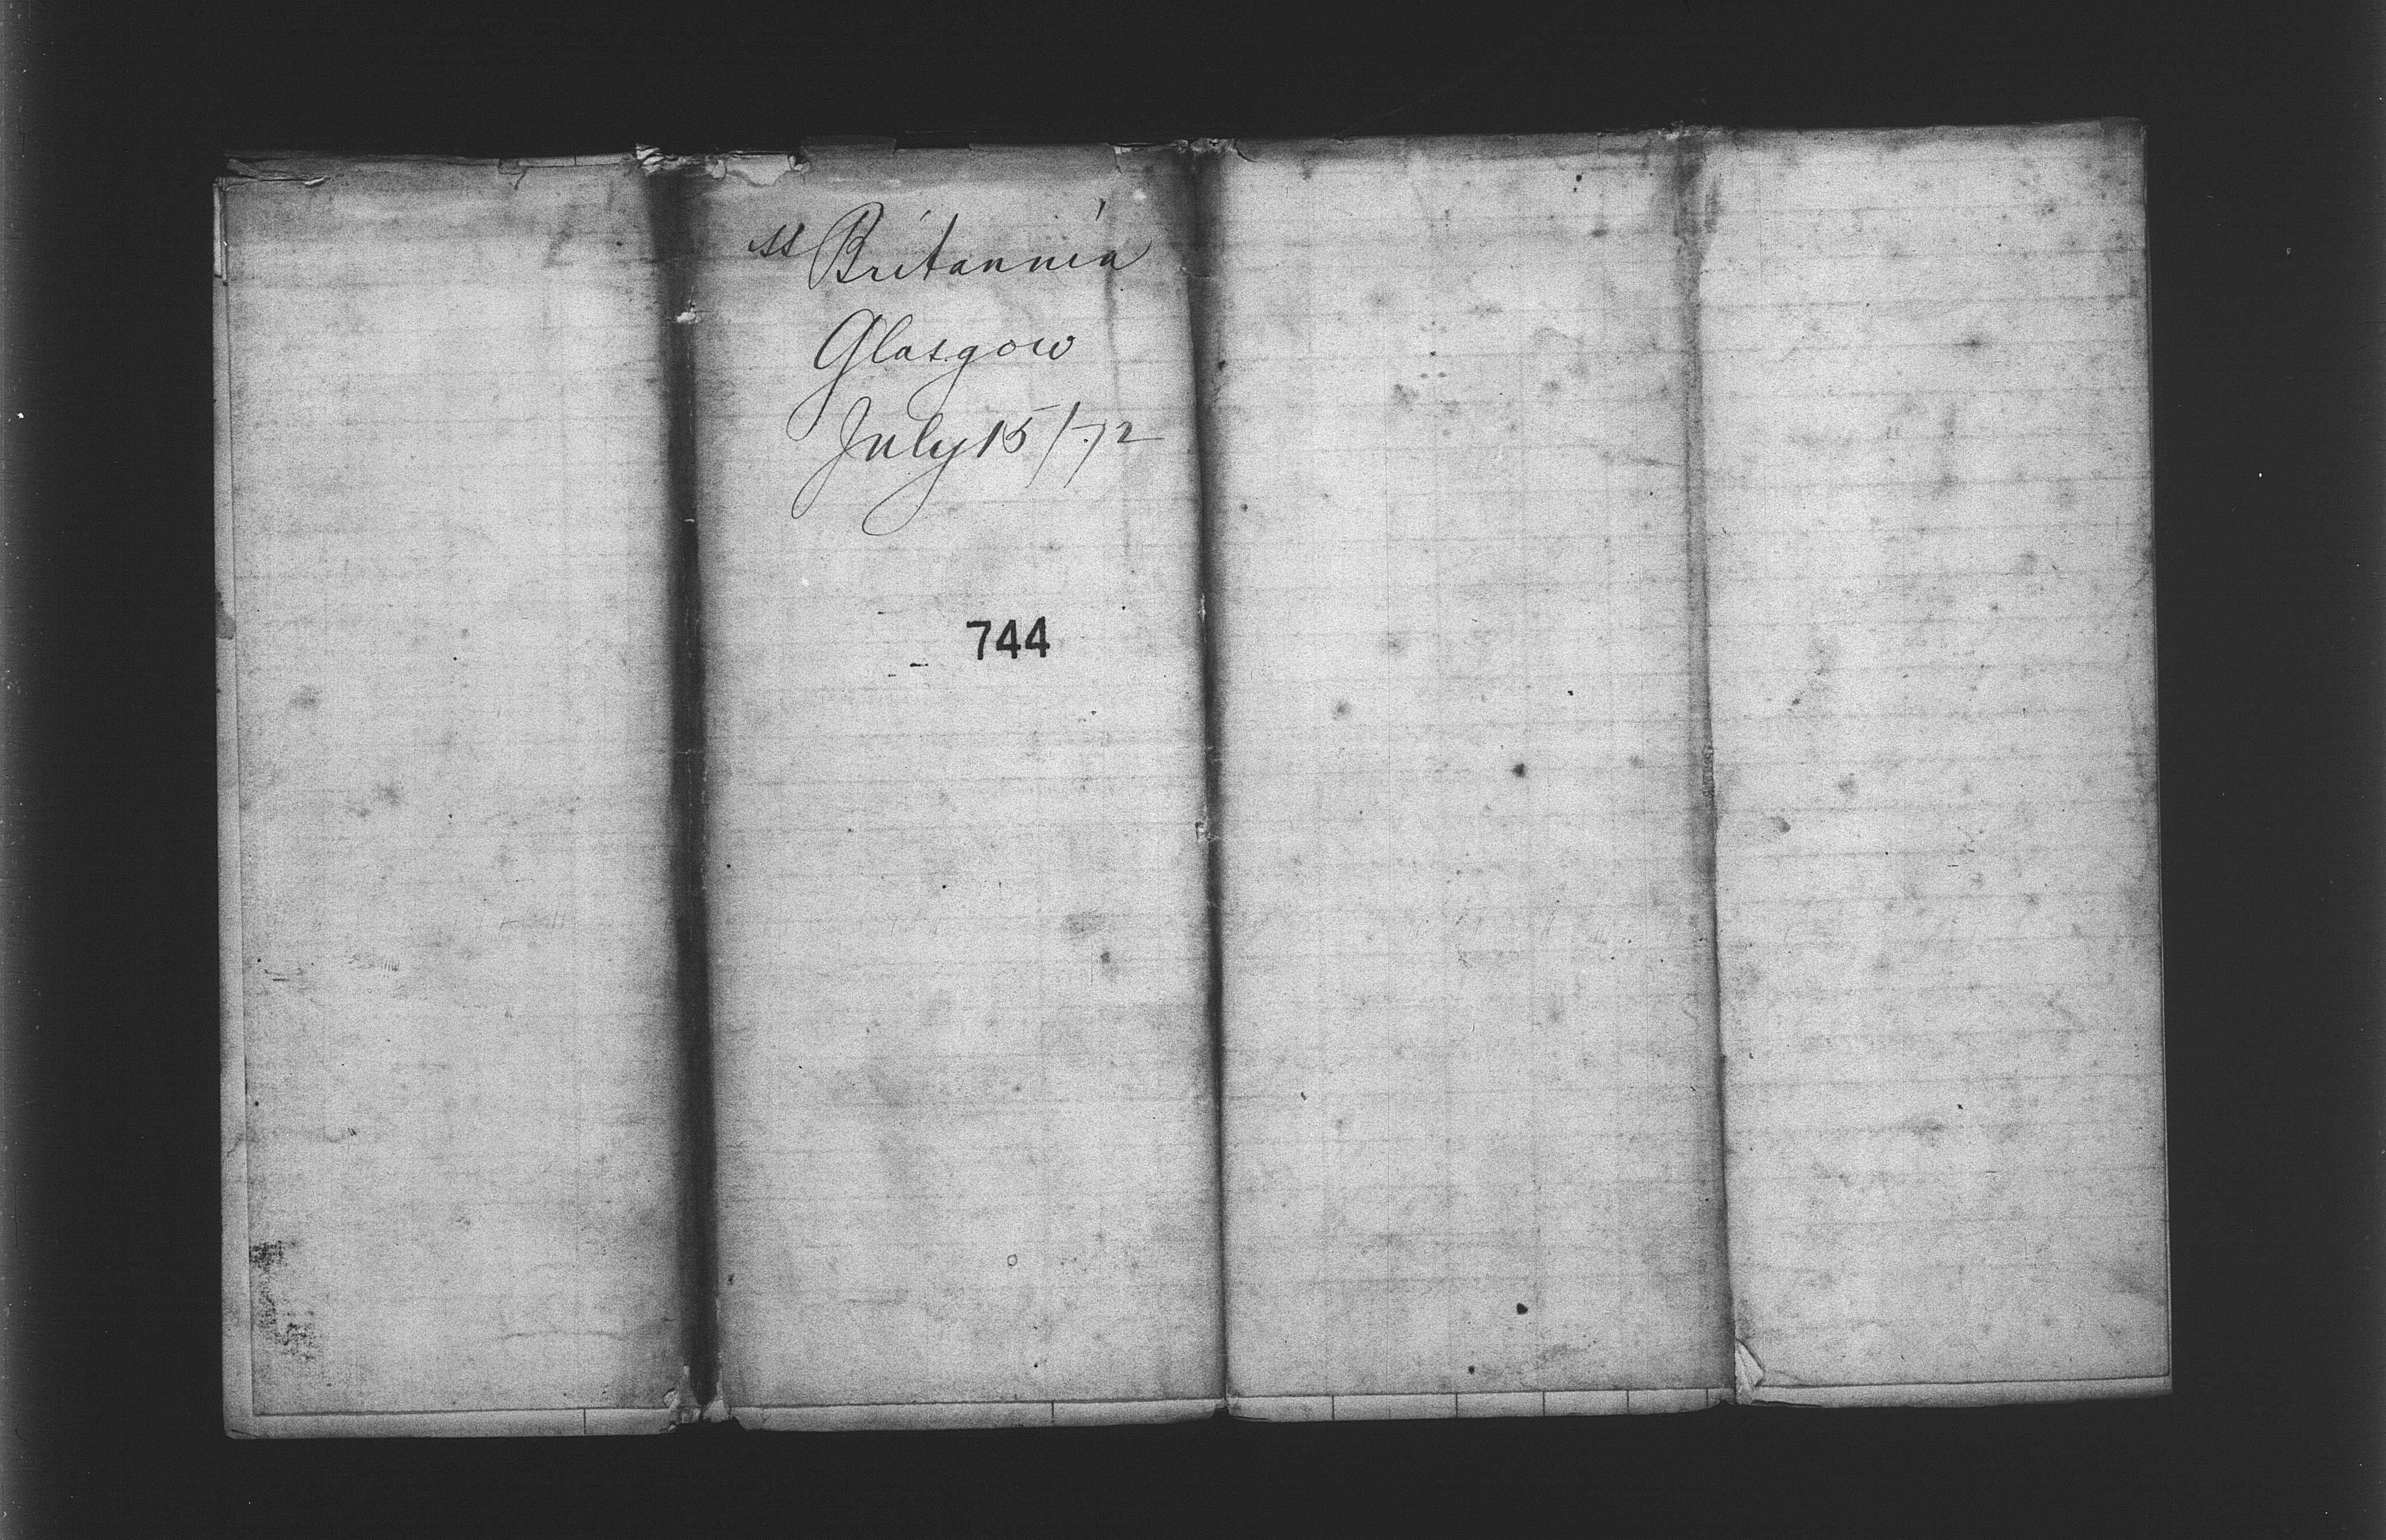 SS Britannia
Glasgow
July 15/72
744